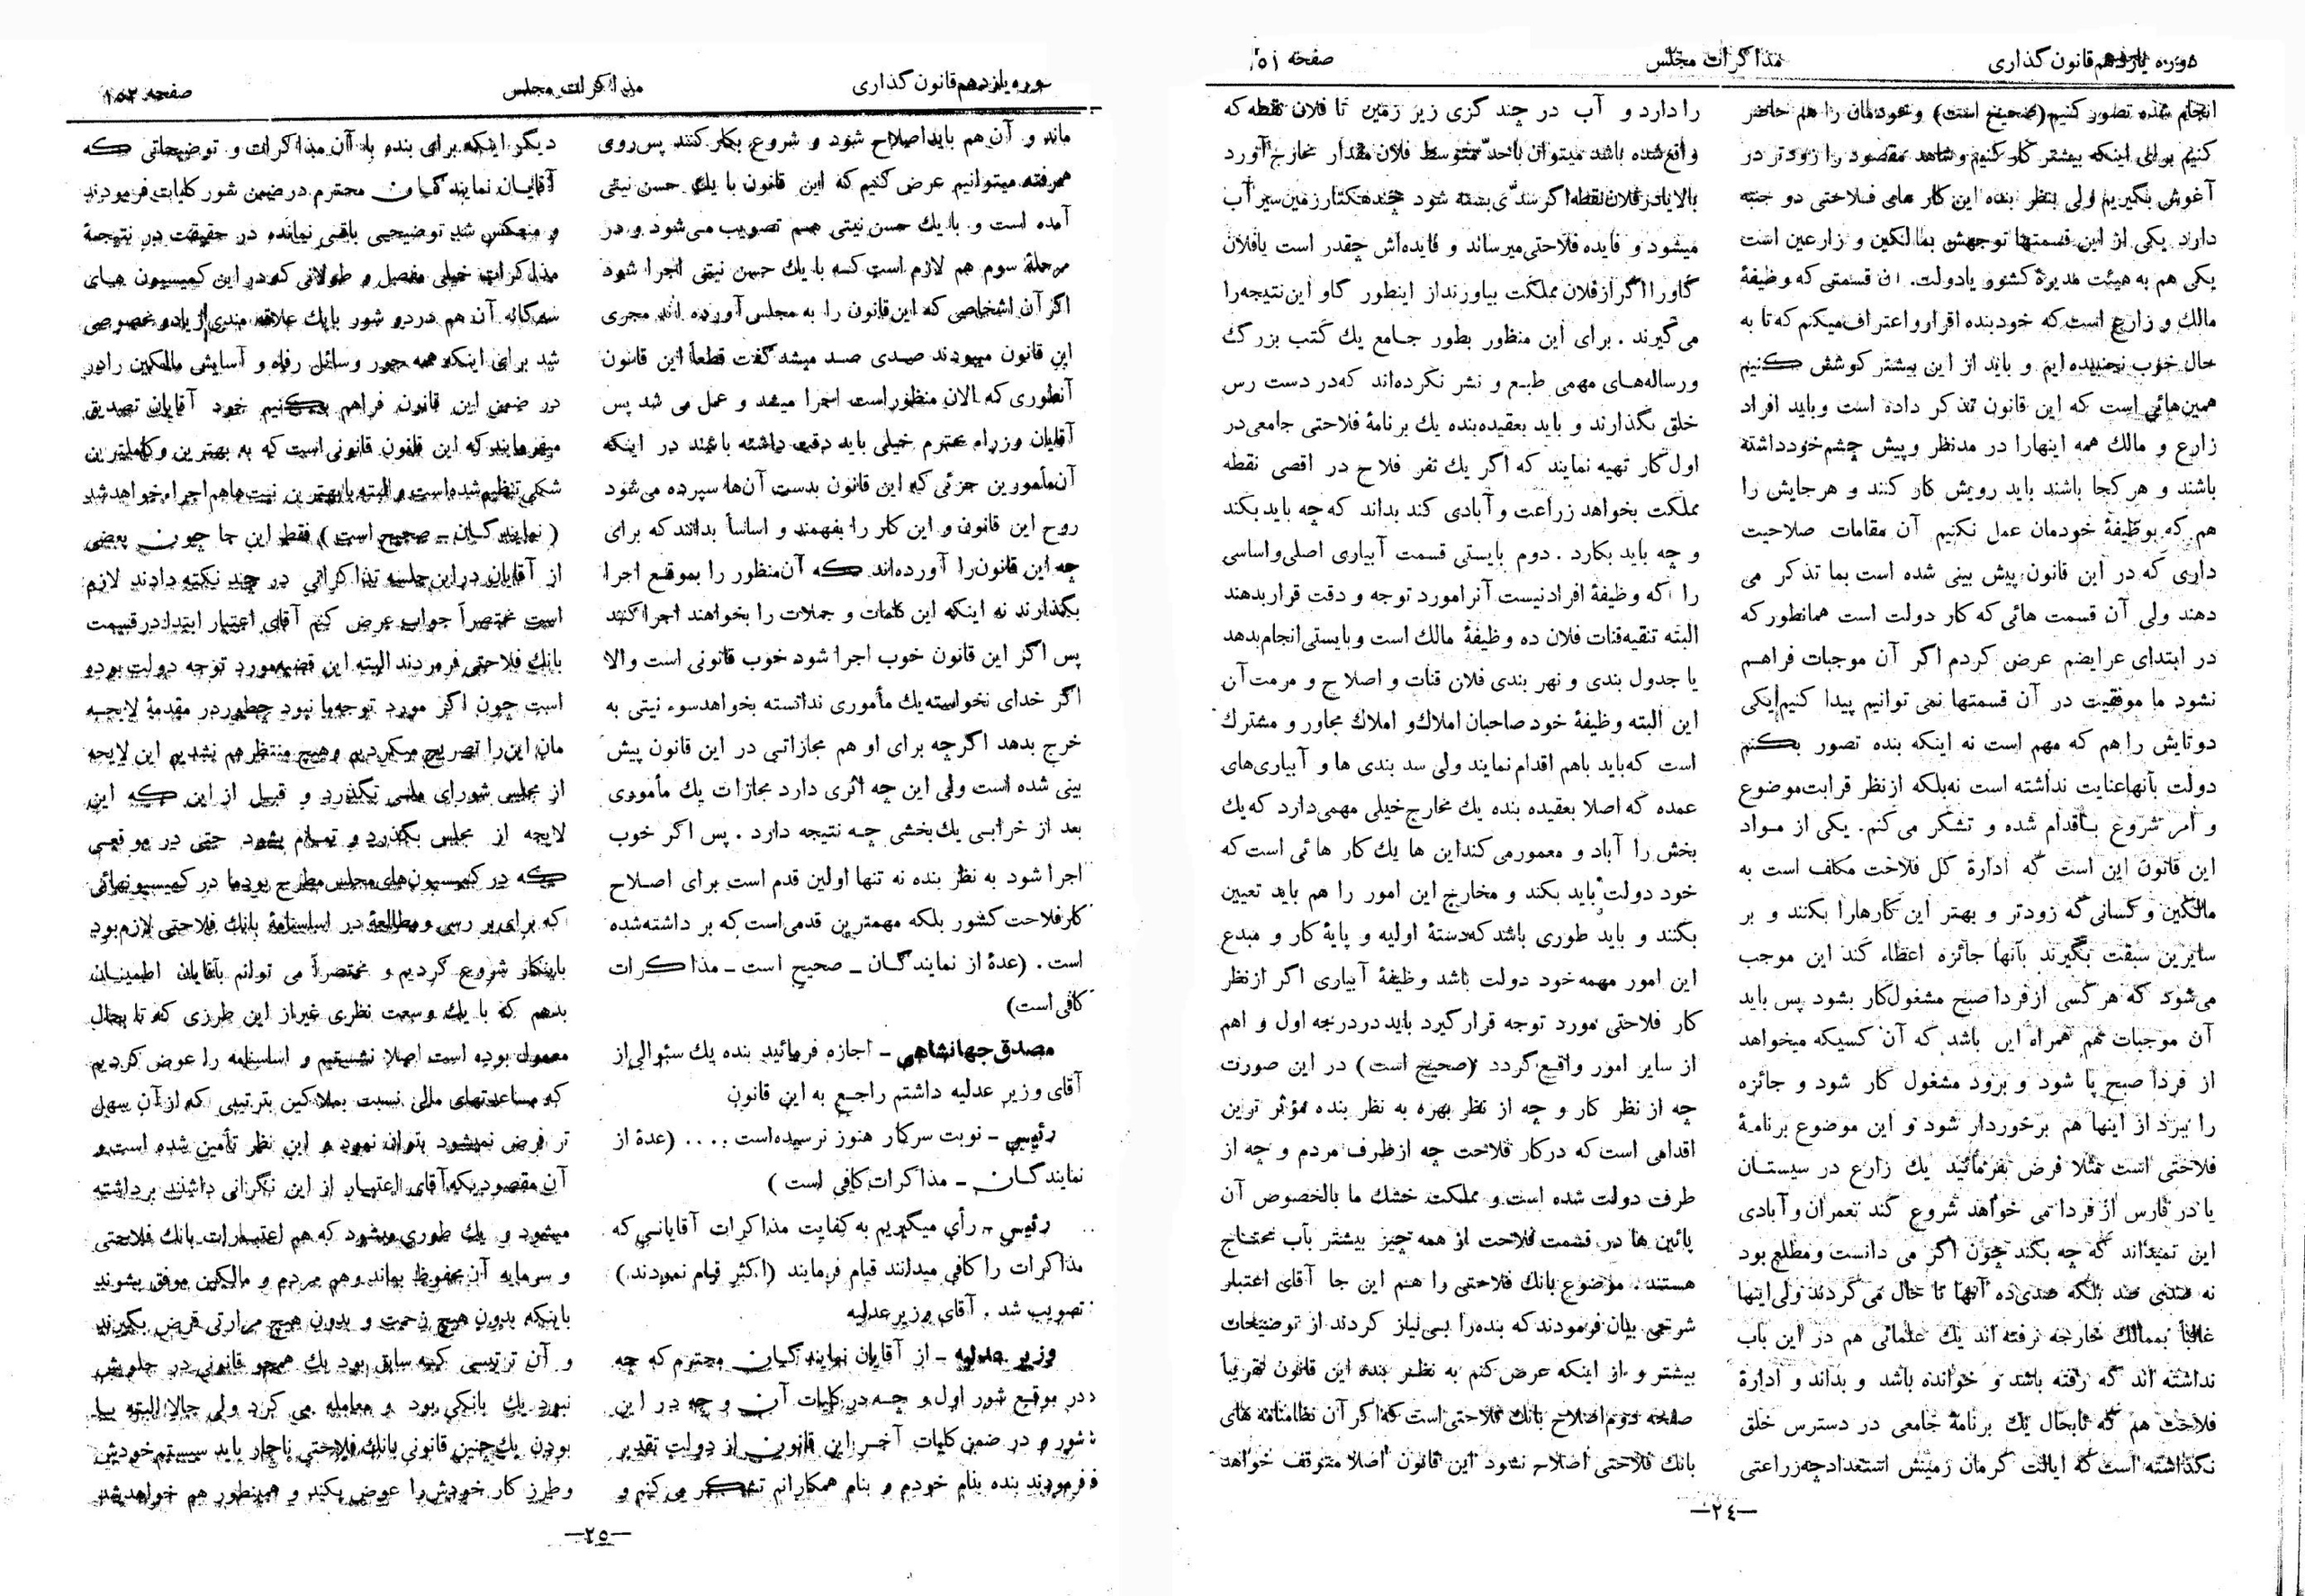 دوره یازدهم قانون گذاری
مذاکرات مجلس
صفحه ۱۵۱
انجام شده تصور کنیم (صحیح است) وخودمان را هم حاضر
کنیم برای اینکه بیشتر کار کنیم وشاهد مقصود را زودتر در
آغوش بگیریم ولی بنظر بنده این کار های فلاحتی دو جنبه
دارد یکی از این قسمتها توجهش بمالکین و زارعین است
یکی هم به هیئت مدیرهٔ کشور یادولت. آن قسمتی که وظیفهٔ
مالك و زارع است که خود بنده اقرار و اعتراف میکنم که تا به
حال خوب نجنبیده ایم و باید از این بیشتر کوشش کنیم
همین‌هائی است که این قانون تذکر داده است و باید افراد
زارع و مالك همه اینهارا در مدنظر وپیش چشم خودداشته
باشند و هر کجا باشند باید رویش کار کنند و هرجایش را
هم که بوظیفهٔ خودمان عمل نکنیم آن مقامات صلاحیت
داری که در این قانون پیش بینی شده است بما تذکر می
دهند ولی آن قسمت هائی که کار دولت است همانطور که
در ابتدای عرایضم عرض کردم اگر آن موجبات فراهم
نشود ما موفقیت در آن قسمتها نمی توانیم پیدا کنیم یکی
دوتایش را هم که مهم است نه اینکه بنده تصور بکنم
دولت بآنها عنایت نداشته است نه بلکه از نظر قرابت موضوع
و امر شروع باقدام شده و تشکر می کنم. یکی از مواد
این قانون این است که ادارهٔ کل فلاحت مکلف است به
مالکین و کسانی که زودتر و بهتر این کارهارا بکنند و بر
سایرین سبقت بگیرند بآنها جائزه اعطاء کند این موجب
می‌شود که هر کسی از فردا صبح مشغول کار بشود پس باید
آن موجبات هم همراه این باشد که آن کسیکه میخواهد
از فردا صبح پا شود و برود مشغول کار شود و جائزه
را ببرد از اینها هم برخوردار شود و این موضوع برنامهٔ
فلاحتی است مثلا فرض بفرمائید یك زارع در سیستان
یا در فارس از فردا می خواهد شروع کند بعمران و آبادی
این نمیداند که چه بکند چون اگر می دانست ومطلع بود
نه صدی صد بلکه صدی ده آنها تا حال می کردند ولی اینها
غالباً بممالك خارجه نرفته اند یك علمائی هم در این باب
نداشته اند که رفته باشد و خوانده باشد و بداند و ادارهٔ
فلاحت هم که تابحال یك برنامهٔ جامعی در دسترس خلق
نگذاشته است که ایالت کرمان زمینش استعداد چه زراعتی
را دارد و آب در چند گزی زیر زمین تا فلان نقطه که
واقع شده باشد میتوان باحد متوسط فلان مقدار مخارج آورد
بالا یا در فلان نقطه اگر سدّی بسته شود چند هکتار زمین سیر آب
میشود و فایده فلاحتی میرساند و فایده‌اش چقدر است یا فلان
گاورا اگر از فلان مملکت بیاورند از اینطور گاو این نتیجه را
می گیرند . برای این منظور بطور جامع یك کتب بزرگ
ورساله‌های مهمی طبع و نشر نکرده‌اند که در دست رس
خلق بگذارند و باید بعقیده بنده یك برنامهٔ فلاحتی جامعی در
اول کار تهیه نمایند که اگر یك نفر فلاح در اقصی نقطه
مملکت بخواهد زراعت و آبادی کند بداند که چه باید بکند
و چه باید بکارد . دوم بایستی قسمت آبیاری اصلی و اساسی
را که وظیفهٔ افراد نیست آنرا مورد توجه و دقت قرار بدهند
البته تنقیه قنات فلان ده وظیفهٔ مالك است و بایستی انجام بدهد
یا جدول بندی و نهر بندی فلان قنات و اصلاح و مرمت آن
این البته وظیفهٔ خود صاحبان املاك و املاك مجاور و مشترك
است که باید باهم اقدام نمایند ولی سد بندی ها و آبیاری‌های
عمده که اصلا بعقیده بنده یك مخارج خیلی مهمی دارد که یك
بخش را آباد و معمور می کند این ها یك کار هائی است که
خود دولت باید بکند و مخارج این امور را هم باید تعیین
بکنند و باید طوری باشد که دستهٔ اولیه و پایهٔ کار و مبدع
این امور مهمه خود دولت باشد وظیفهٔ آبیاری اگر از نظر
کار فلاحتی مورد توجه قرار گیرد باید در درجه اول و اهم
از سایر امور واقع گردد (صحیح است) در این صورت
چه از نظر کار و چه از نظر بهره به نظر بنده مؤثر ترین
اقدامی است که در کار فلاحت چه از طرف مردم و چه از
طرف دولت شده است و مملکت خشك ما بالخصوص آن
پائین ها در قسمت فلاحت از همه چیز بیشتر بآب محتاج
هستند . موضوع بانك فلاحتی را هم این جا آقای اعتبار
شرحی بیان فرمودند که بنده را بی نیاز کردند از توضیحات
بیشتر و از اینکه عرض کنم به نظر بنده این قانون تقریباً
صفحه دوم اصلاح بانك فلاحتی است که اگر آن نظامنامه های
بانك فلاحتی اصلاح نشود این قانون اصلا متوقف خواهد
—۲۴—
دوره یازدهم قانون گذاری
مذاکرات مجلس
صفحه ۱۵۲
ماند و آن هم باید اصلاح شود و شروع بکار کنند پس روی
همرفته میتوانیم عرض کنیم که این قانون با یك حسن نیتی
آمده است و با یك حسن نیتی هم تصویب می‌شود و در
مرحلهٔ سوم هم لازم است که با یك حسن نیتی اجرا شود
اگر آن اشخاصی که این قانون را به مجلس آورده اند مجری
این قانون میبودند صدی صد میشد گفت قطعاً این قانون
آنطوری که الان منظور است اجرا میشد و عمل می شد پس
آقایان وزراء محترم خیلی باید دقت داشته باشند در اینکه
آن مأمورین جزئی که این قانون بدست آن‌ها سپرده می‌شود
روح این قانون و این کار را بفهمند و اساساً بدانند که برای
چه این قانون را آورده‌اند که آن منظور را بموقع اجرا
بگذارند نه اینکه این کلمات و جملات را بخواهند اجرا کنند
پس اگر این قانون خوب اجرا شود خوب قانونی است والا
اگر خدای نخواسته یك مأموری ندانسته بخواهد سوء نیتی به
خرج بدهد اگرچه برای او هم مجازاتی در این قانون پیش
بینی شده است ولی این چه اثری دارد مجازات یك مأموری
بعد از خرابی یك بخشی چه نتیجه دارد . پس اگر خوب
اجرا شود به نظر بنده نه تنها اولین قدم است برای اصلاح
کار فلاحت کشور بلکه مهمترین قدمی است که بر داشته شده
است . (عدهٔ از نمایندگان ـ صحیح است ـ مذاکرات
کافی است)
مصدق جهانشاهی ـ اجازه فرمائید بنده یك سئوالی از
آقای وزیر عدلیه داشتم راجع به این قانون
رئیس ـ نوبت سرکار هنوز نرسیده است .... (عدهٔ از
نمایندگان ـ مذاکرات کافی است )
رئیس ـ رأی میگیریم به کفایت مذاکرات آقایانی که
مذاکرات را کافی میدانند قیام فرمایند (اکثر قیام نمودند)
تصویب شد . آقای وزیر عدلیه
وزیر عدلیه ـ از آقایان نمایندگان محترم که چه
در موقع شور اول و چه در کلیات آن و چه در این
شور و در ضمن کلیات آخر این قانون از دولت تقدیر
فرمودند بنده بنام خودم و بنام همکارانم تشکر می کنم و
دیگر اینکه برای بنده با آن مذاکرات و توضیحاتی که
آقایان نمایندگان محترم در ضمن شور کلیات فرمودند
و منعکس شد توضیحی باقی نمانده در حقیقت در نتیجهٔ
مذاکرات خیلی مفصل و طولانی که در این کمیسیون های
سه گانه آن هم در دو شور با یك علاقه مندی زیاد و مخصوصی
شد برای اینکه همه جور وسائل رفاه و آسایش مالکین را در
در ضمن این قانون فراهم بکنیم خود آقایان تصدیق
میفرمایند که این قانون قانونی است که به بهترین و کاملترین
شکلی تنظیم شده است و البته با بهترین نیت‌ها هم اجراء خواهد شد
( نمایندگان ـ صحیح است ) فقط این جا چون بعضی
از آقایان در این جلسه تذاکراتی در چند نکته دادند لازم
است مختصراً جواب عرض کنم آقای اعتبار ابتدا در قسمت
بانك فلاحتی فرمودند البته این قضیه مورد توجه دولت بوده
است چون اگر مورد توجه ما نبود چطور در مقدمهٔ لایحه
مان این را تصریح میکردیم و هیچ منتظر هم نشدیم این لایحه
از مجلس شورای ملی بگذرد و قبل از این که این
لایحه از مجلس بگذرد و تمام بشود حتی در موقعی
که در کمیسیون‌های مجلس مطرح بود ما در کمیسیونهائی
که برای بررسی و مطالعهٔ در اساسنامهٔ بانك فلاحتی لازم بود
باینکار شروع کردیم و مختصراً می توانم بآقایان اطمینان
بدهم که با یك وسعت نظری غیر از این طرزی که تا بحال
معمول بوده است اصلا نشستیم و اساسنامه را عوض کردیم
که مساعدتهای مالی نسبت بملاکین بترتیبی که از آن سهل
تر فرض نمیشود بتوان نمود و این نظر تأمین شده است و
آن مقصودیکه آقای اعتبار از این نگرانی داشتند برداشته
میشود و یك طوری میشود که هم اعتبارات بانك فلاحتی
و سرمایه آن محفوظ بماند و هم مردم و مالکین موفق بشوند
باینکه بدون هیچ زحمت و بدون هیچ مرارتی قرض بگیرند
و آن ترتیبی که سابق بود یك همچو قانونی در جلویش
نبود یك بانکی بود و معامله می کرد ولی حالا البته با
بودن یك چنین قانونی بانك فلاحتی ناچار باید سیستم خودش
و طرز کار خودش را عوض بکند و همینطور هم خواهد شد
—۲۵—